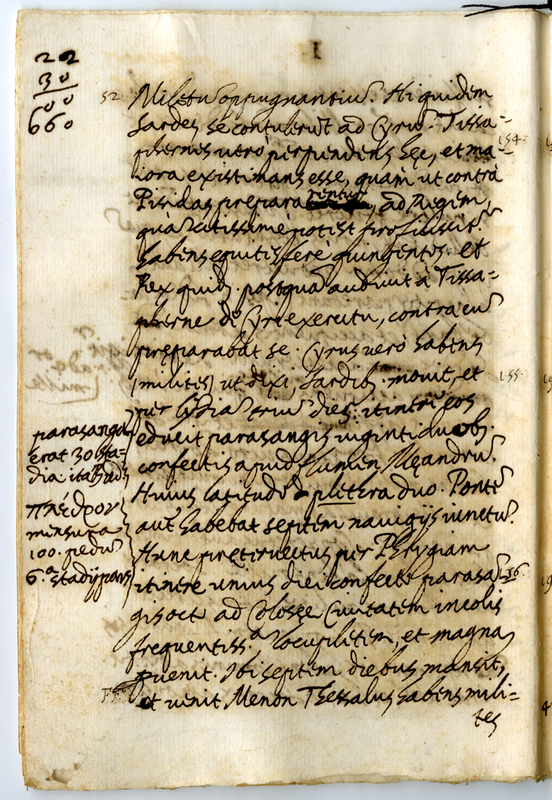 I
22
30
00
660
52. Miletũ oppugnantiũ. Hi quidem
Sardes se contulerũt ad Cyrũ. Tissa-
phernes uero perpendens hęc, et ma- 154.
iora existimans esse, quàm ut contra
Pisidas prepara rentur, ad Regem,
quà celerissime potest
habens equites ferè quingentos. et
Rex quidẽ, postquã audiuit à Tissa-
pherne de Cyri exercitu, contra eũ
preparabat se. Cyrus uero habens
milites, ut dixi, Sardibꝫ mouit, et 155.
per Lydiã triũ dieꝝ itinere eos
eduxit parasangis uiginti duobꝫ
confectis apud flumen Meandrũ.
Huius latitudo plettera duo. Pontẽ
aut habebat septem nauigijs iunctũ.
Hunc pretervectus per Phrygiam
itinere unius diei confecto parasã- 156.
gis octo ad Colosse Ciuitatem incolis
frequentiss.ª locupletem, et magnã
puenit. Ibi septem diebus mansit,
et uenit Menon Thessalus habens mili-
tes
parasanga
erat 30 sta-
dia
πλέθρον
mensura
100. pedũ
6.ª stadij pars